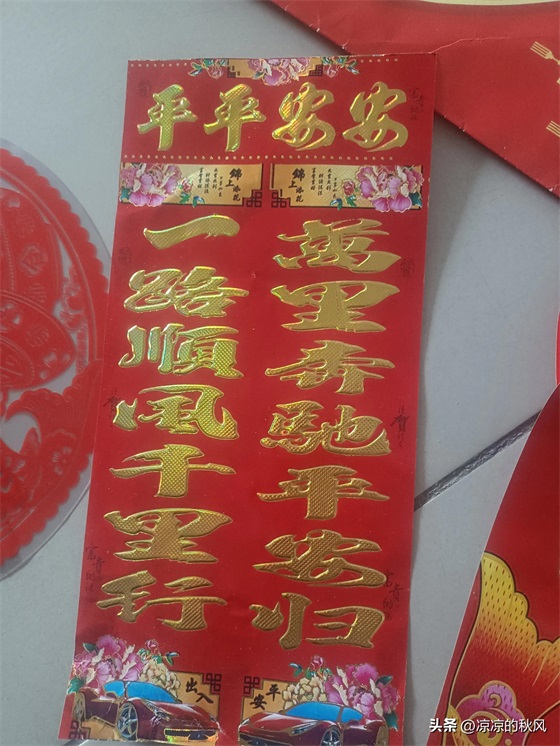 平平安安
錦上添花
錦上添花
萬里奔馳平安归
一路順風千里行
出入
平安
头条 @凉凉的秋风